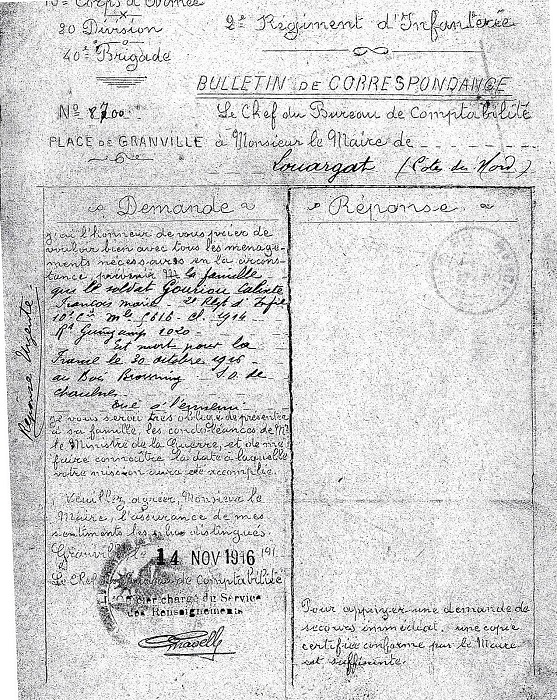 10e Corps d'Armée
20 Division
40e Brigade
2e Régiment d'Infanterie
BULLETIN DE CORRESPONDANCE
No 8700
Le Chef du Bureau de Comptabilité
PLACE DE GRANVILLE à Monsieur le Maire de
Louargat (Côtes du Nord)
Demande
j'ai l'honneur de vous prier de
vouloir bien avec tous les ménage-
ments nécessaires en la circons-
tance, prévenir la famille
que le soldat Gouriou Calixte
François marie 2e Regt d'Infie
10e Cie Mle 6616 Cl. 1914
Rt Guingamp 2020
Est mort pour la
France le 30 octobre 1916
au Boi Browning S.O. de
chaulnes
Tué à l'ennemi
je vous serai très obligé de présenter
à sa famille, les condoléances de Mr
le Ministre de la Guerre, et de me
faire connaître la date à laquelle
votre mission aura été accomplie.
Veuillez agréer, Monsieur le
Maire, l'assurance de mes
sentiments les plus distingués.
Granville 14 NOV 1916 191
Le Chef du Bureau de Comptabilité
L'Officier chargé du Service
des Renseignements
Réponse Urgente
Réponse
Pour appuyer une demande de
secours immédiat, une copie
certifiée conforme par le Maire
est suffisante.